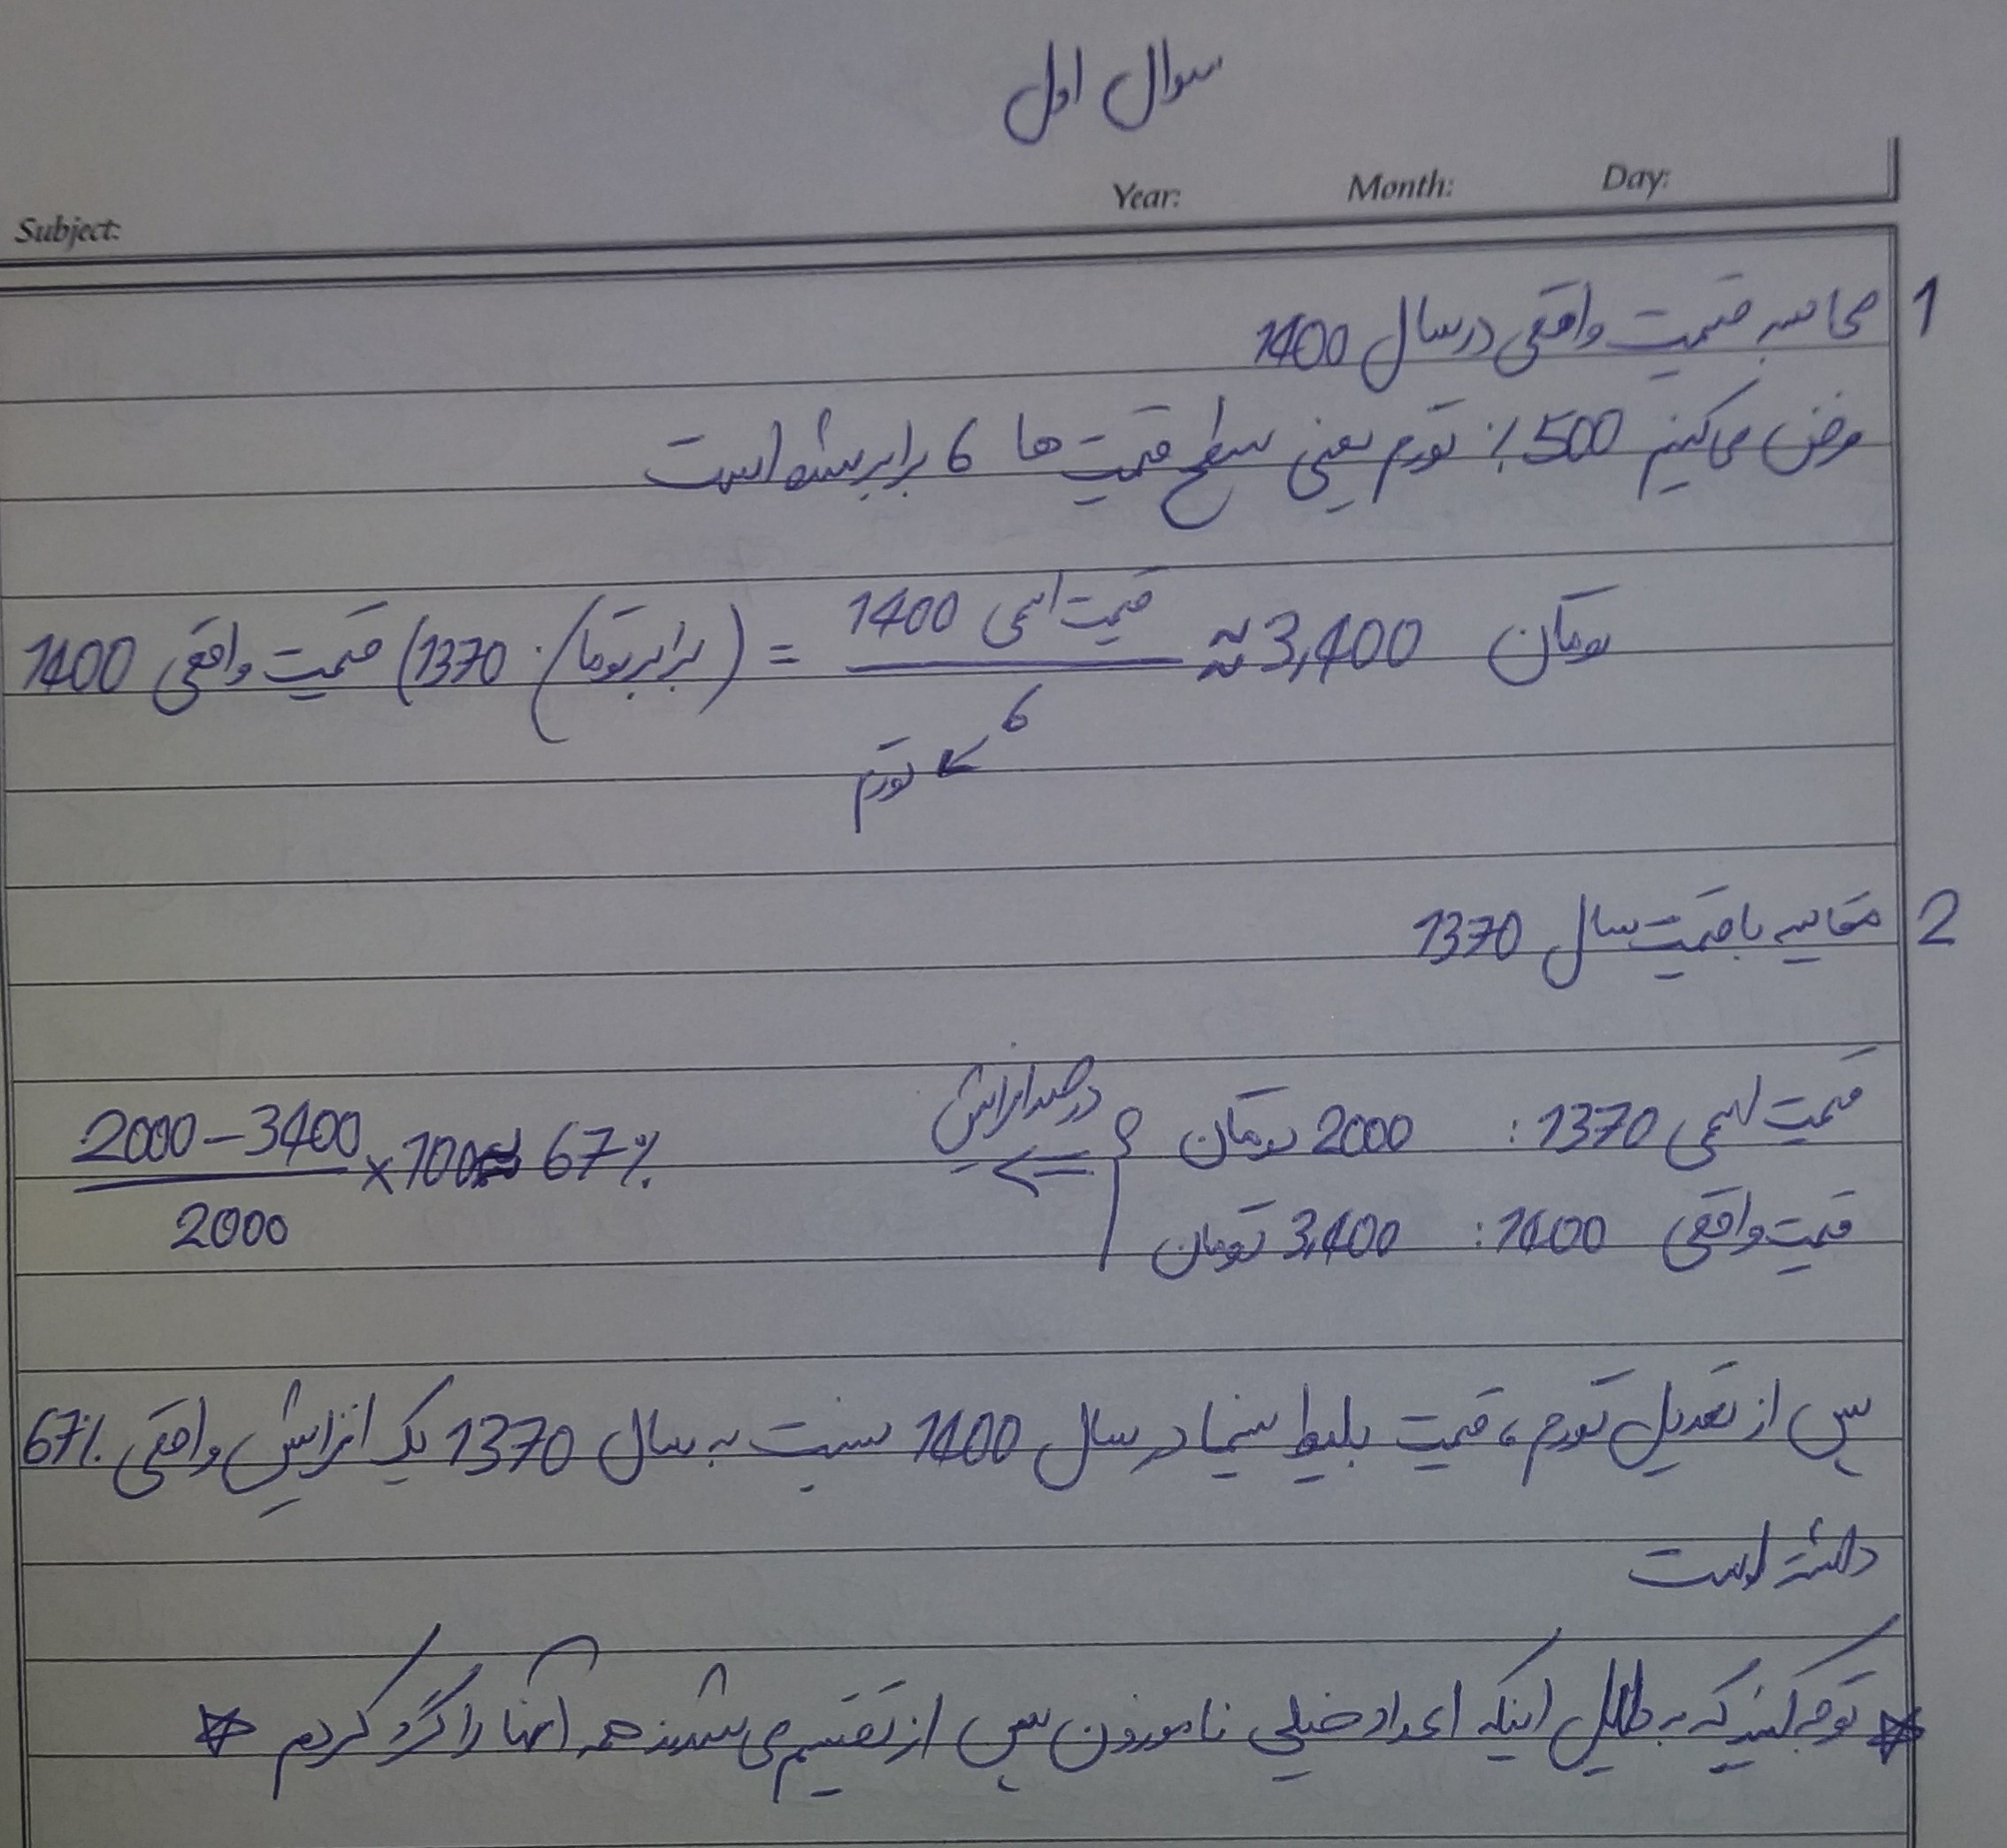 سوال اول
Subject: Year: Month: Day:
1 محاسبه قیمت واقعی در سال 1400
فرض می‌کنیم 500٪ تورم یعنی سطح قیمت ها 6 برابر شده است
1400 قیمت واقعی (1370 برابر با) = قیمت اسمی 1400 / 6 ≈ 3,400 تومان
تورم
2 مقایسه با قیمت سال 1370
قیمت اسمی 1370 : 2000 تومان
قیمت واقعی 1400 : 3,400 تومان
درصد افزایش ⇐ 2000 – 3400 / 2000 × 100 ≈ 67٪
پس از تعدیل تورم، قیمت بلیط سینما در سال 1400 نسبت به سال 1370 یک افزایش واقعی 67٪
داشته است
* توجه کنید که به دلیل اینکه اعداد خیلی ناموزون پس از تقسیم می شدند همه آنها را گرد کردم *